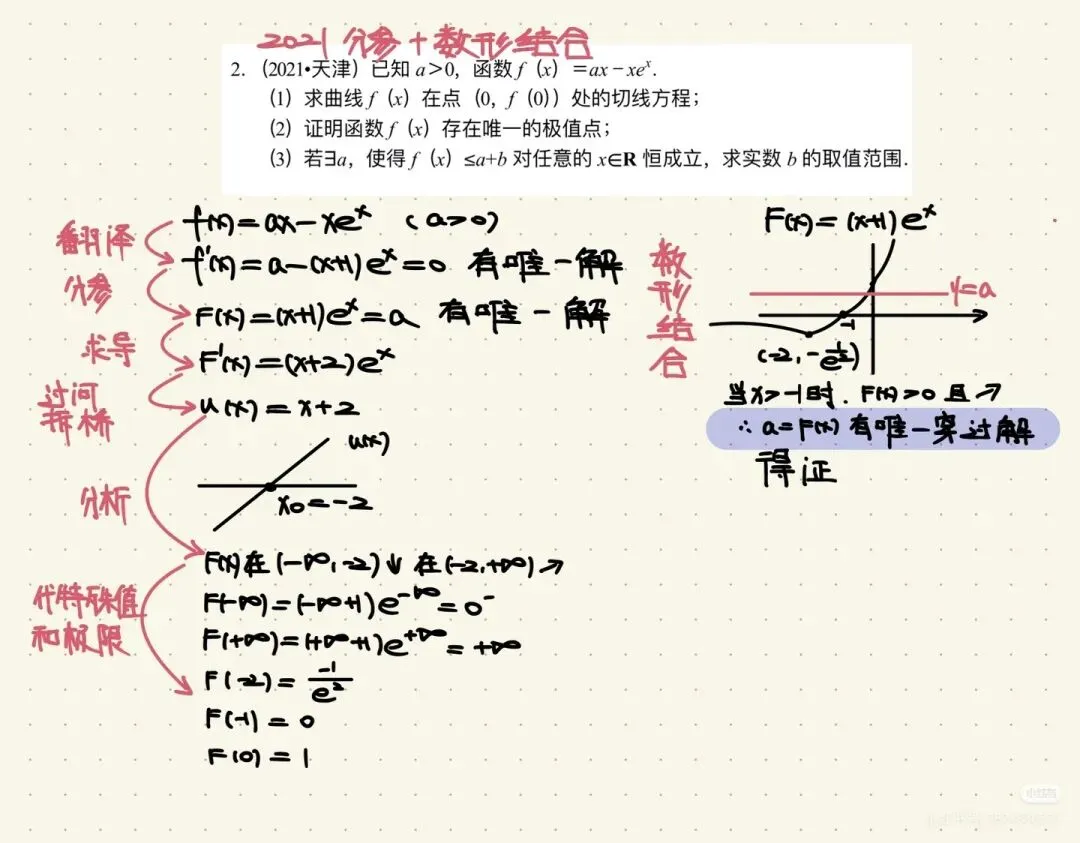 2021 分参+数形结合
2.（2021•天津）已知 a＞0，函数 f（x）=ax－xeˣ.
（1）求曲线 f（x）在点（0，f（0））处的切线方程；
（2）证明函数 f（x）存在唯一的极值点；
（3）若∃a，使得 f（x）≤a+b 对任意的 x∈R 恒成立，求实数 b 的取值范围.
翻译
f(x)=ax-xeˣ (a>0)
f'(x)=a-(x+1)eˣ=0 有唯一解
分参
F(x)=(x+1)eˣ=a 有唯一解
求导
F'(x)=(x+2)eˣ
过河
拆桥
u(x)=x+2
u(x)
x₀=-2
分析
F(x)在(-∞,-2)↓ 在(-2,+∞)↗
代特殊值
和极限
F(-∞)=(-∞+1)e^-∞=0⁻
F(+∞)=(+∞+1)e^+∞=+∞
F(-2)=-1/e²
F(-1)=0
F(0)=1
数
形
结
合
F(x)=(x+1)eˣ
y=a
-1
(-2,-1/e²)
当x>-1时. F(x)>0 且↗
∴a=F(x)有唯一穿过解
得证
小红书